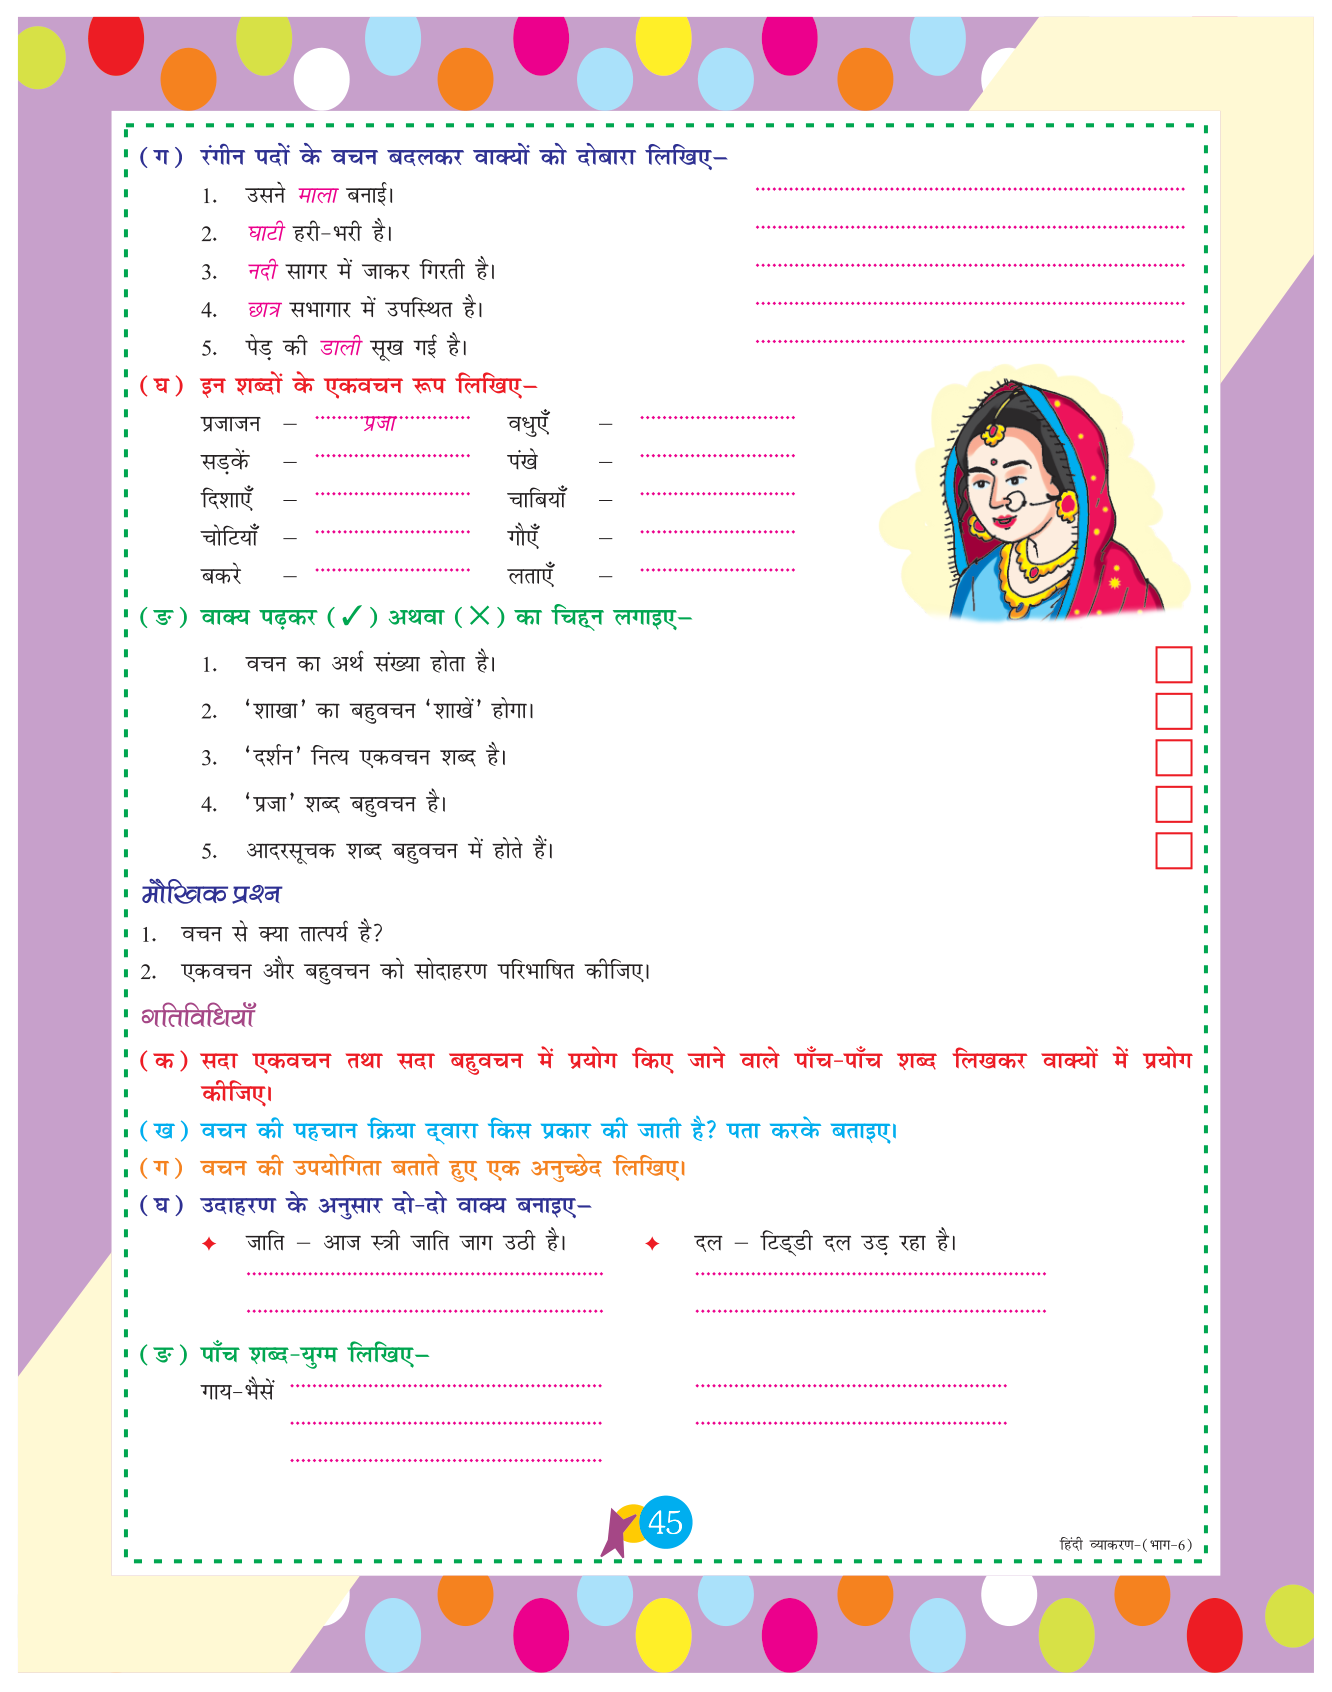 (ग) रंगीन पदों के वचन बदलकर वाक्यों को दोबारा लिखिए–
1. उसने माला बनाई।
2. घाटी हरी-भरी है।
3. नदी सागर में जाकर गिरती है।
4. छात्र सभागार में उपस्थित है।
5. पेड़ की डाली सूख गई है।
(घ) इन शब्दों के एकवचन रूप लिखिए–
प्रजाजन – प्रजा वधुएँ –
सड़कें – पंखे –
दिशाएँ – चाबियाँ –
चोटियाँ – गौएँ –
बकरे – लताएँ –
(ङ) वाक्य पढ़कर (✓) अथवा (✕) का चिह्न लगाइए–
1. वचन का अर्थ संख्या होता है।
2. ‘शाखा’ का बहुवचन ‘शाखें’ होगा।
3. ‘दर्शन’ नित्य एकवचन शब्द है।
4. ‘प्रजा’ शब्द बहुवचन है।
5. आदरसूचक शब्द बहुवचन में होते हैं।
मौखिक प्रश्न
1. वचन से क्या तात्पर्य है?
2. एकवचन और बहुवचन को सोदाहरण परिभाषित कीजिए।
गतिविधियाँ
(क) सदा एकवचन तथा सदा बहुवचन में प्रयोग किए जाने वाले पाँच-पाँच शब्द लिखकर वाक्यों में प्रयोग
कीजिए।
(ख) वचन की पहचान क्रिया द्वारा किस प्रकार की जाती है? पता करके बताइए।
(ग) वचन की उपयोगिता बताते हुए एक अनुच्छेद लिखिए।
(घ) उदाहरण के अनुसार दो-दो वाक्य बनाइए–
✦ जाति – आज स्त्री जाति जाग उठी है। ✦ दल – टिड्डी दल उड़ रहा है।
(ङ) पाँच शब्द-युग्म लिखिए–
गाय-भैसें
45
हिंदी व्याकरण-(भाग-6)